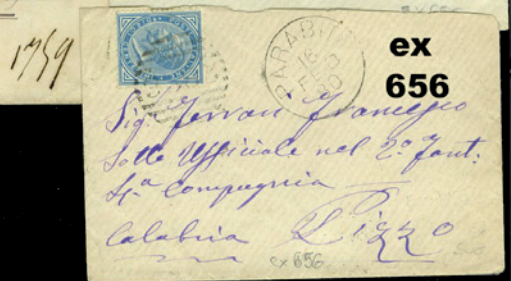 1759
PARABITA
ex
656
Sig. Ferrari Francesco
Sotto Ufficiale nel 2º Fant:
4ª Compagnia
Calabria Pizzo
ex 656